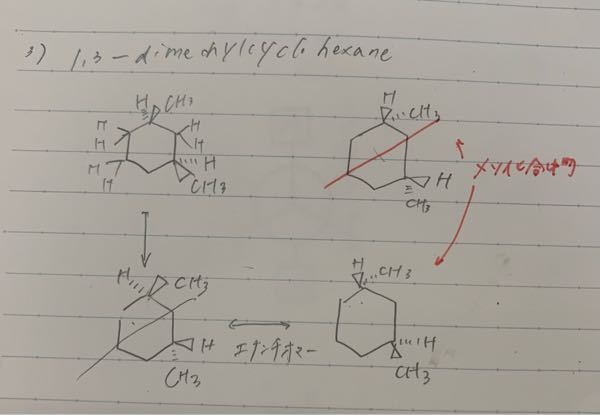 3) 1,3-dimethylcyclohexane
H CH3
H H
H H
H H
H CH3
H
CH3
H
CH3
メソ化合物
H
CH3
H CH3
H
エナンチオマー
CH3
H
CH3